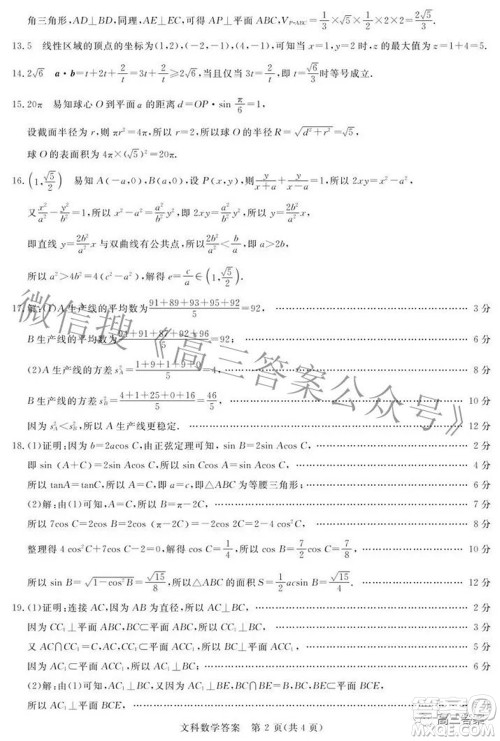 角三角形,AD⊥BD,同理,AE⊥EC,可得 AP⊥平面 ABC,V_{P-ABC}=1/3×√5×1/2×2×2=2√5/3.
13.5 线性区域的顶点的坐标为(1,2),(-2,-1),(4,-1),可知当 x=1,y=2 时,z 的最大值为 z=1+4=5.
14.2√6 a·b=t+2t+2/t=3t+2/t≥2√6,当且仅当 3t=2/t,即 t=√6/3时等号成立.
15.20π 易知球心 O 到平面 α 的距离 d=OP·sin π/6=1,
设截面半径为 r,则 πr²=4π,所以 r=2,所以球 O 的半径 R=√(d²+r²)=√5,
球 O 的表面积为 4π×(√5)²=20π.
16.(1,√5/2) 易知 A(-a,0),B(a,0),设 P(x,y),则 y/(x+a)+y/(x-a)=1,所以 2xy=x²-a²,
又 x²/a²-y²/b²=1,所以 x²-a²=a²/b² y²,即 2xy=a²/b² y²,所以 y=2b²/a² x,
即直线 y=2b²/a² x 与双曲线有公共点,所以 b/a>2b²/a²,即 a>2b,
所以 a²>4b²=4(c²-a²),解得 e=c/a∈(1,√5/2).
17.解:(1)A 生产线的平均数为(91+89+93+95+92)/5=92, 3 分
B 生产线的平均数为(94+91+87+92+96)/5=92. 6 分
(2)A 生产线的方差 s_A²=(1+9+1+9+0)/5=4, 8 分
B 生产线的方差 s_B²=(4+1+25+0+16)/5=46/5. 10 分
因为 s_A²<s_B²,所以 A 生产线更稳定. 12 分
18.(1)证明:因为 b=2acos C,由正弦定理可知 sin B=2sin Acos C, 2 分
即 sin (A+C)=2sin Acos C,所以 sin Ccos A=sin Acos C, 4 分
所以 tanA=tanC,所以 A=C,即 a=c,即△ABC 为等腰三角形; 6 分
(2)解:由(1)可知,B=π-2C,所以 cos B=-cos 2C, 7 分
所以 7cos C=2-2cos 2C=4-4cos²C, 8 分
整理得 4cos²C+7cos C-2=0,解得 cos C=1/4,所以 cos B=7/8, 10 分
所以 sin B=√(1-cos²B)=√15/8,所以△ABC 的面积 S=1/2 acsin B=√15/4. 12 分
19.(1)证明:连接 AC,因为 AB 为直径,所以 AC⊥BC, 2 分
因为 CC₁⊥平面 ABC,BC⊂平面 ABC,所以 CC₁⊥BC, 3 分
又 AC∩CC₁=C,所以 BC⊥平面 ACC₁, 4 分
因为 AC₁⊂平面 ACC₁,所以 AC₁⊥BC; 6 分
(2)解:由(1)可知,BC⊥平面 ACC₁,所以 BC⊥AC₁,
因为 AC₁⊂平面 ABC₁,
文科数学答案 第 2 页(共 4 页)
微信搜《高三答案公众号》
高三答案